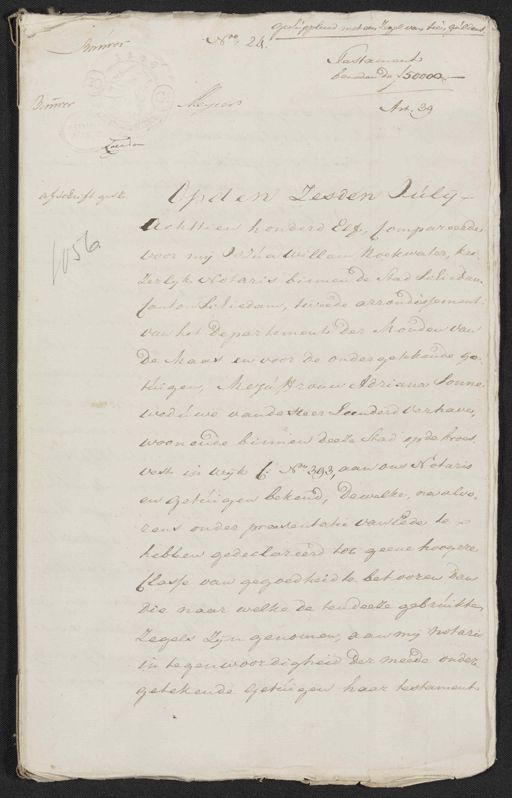 gesuppleerd met een Zegel van tien guldens
Brúwer
No. 24.
Testament
beneden de ƒ50000,—
Brúwer
Meyers
Art. 39
afschrift gest.
1056
Op den Zesden Júlÿ
Achttien honderd Elf, Compareerde
voor mij Willem Nockwater, kei-
zerlyk Notaris binnen de Stad Schiedam
Canton Schiedam, tweede arrondissement
van het Departement der Monden van
de Maas en voor de ondergetekende ge-
túigen, Mejú
frouw Adriana Sonne
wedúwe van de Heer Leenderd Verhave,
woonende binnen deeze Stad op de broers
vest in wyk C: No. 393, aan ons Notaris
en Getúigen bekend, Dewelke, na alvo-
rens onder præsentatie van Eede te
hebben gedeclareerd tot geene hoogere
Classe van gegoedheid te behooren dan
die naar welke de ten deeze gebrúikte
Zegels zyn genomen, aan mij Notaris
in tegenwoordigheid der meede onder-
getekende Getúigen haar testament